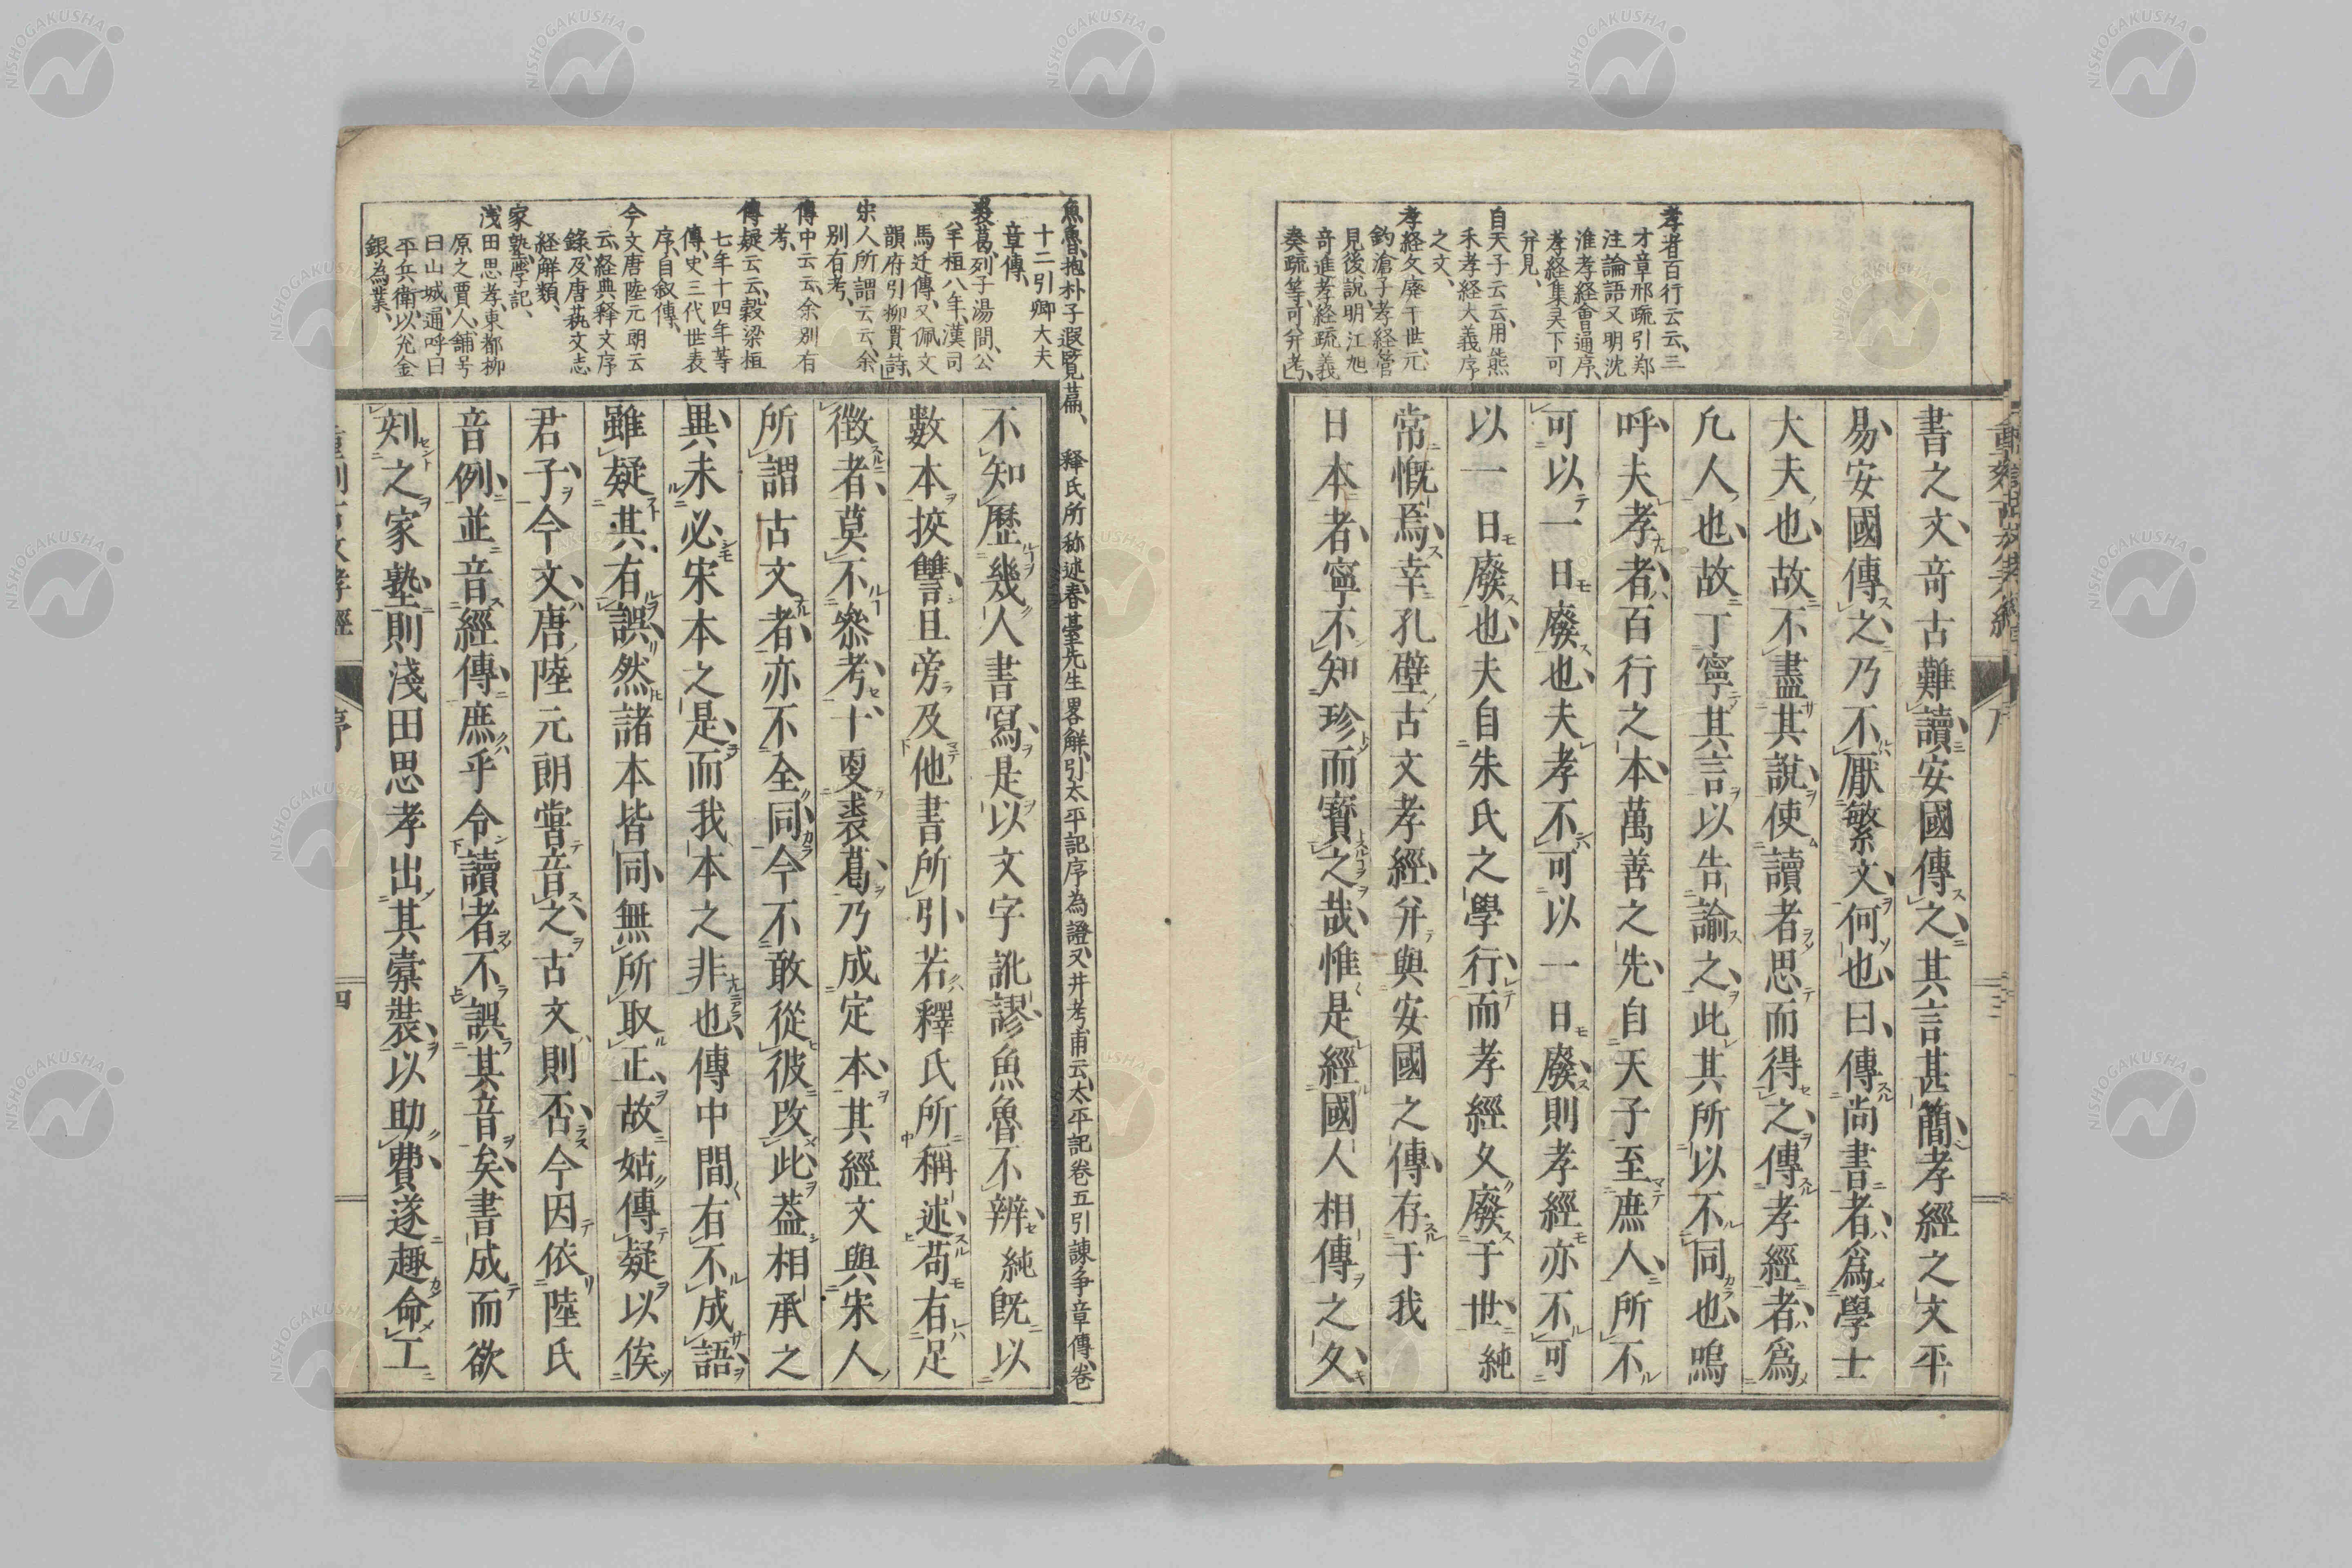 孝者百行云云、三
才章邢疏引鄭
注論語又明沈
淮孝経會通序、
孝経集灵下可
并見、
自天子云云、用熊
禾孝経大義序
之文、
孝経久廃于世、元
釣滄子孝経管
見後說、明江旭
奇進孝経疏義
奏疏等、可并考、
書之文、奇古難讀、安國傳之、其言甚簡、孝經之文平
易、安國傳之、乃不厭繁文、何也、曰、傳尚書者、爲學士
大夫也、故不盡其說、使讀者思而得之、傳孝經者、爲
凡人也、故丁寧其言以告諭之、此其所以不同也、嗚
呼、夫孝者、百行之本、萬善之先、自天子至庶人、所不
可以一日廢也、夫孝不可以一日廢、則孝經亦不可
以一日廢也、夫自朱氏之學行、而孝經久廢于世、純
常慨焉、幸孔壁古文孝經、并與安國之傳、存于我
日本者、寧不知珍而寶之哉、惟是經國人相傳之久、
魚魯、抱朴子遐覧篇、 释氏所称述、春臺先生畧解、引太平記序為證、又井考甫云、太平記巻五引諫争章傳、巻
十二引卿大夫
章傳、
裘葛、列子湯問、公
羊桓八年、漢司
馬迁傳、又佩文
韻府引柳貫詩、
宋人所謂云云、余
別有考、
傳中云云、余別有
考、
傳疑云云、穀梁桓
七年十四年等
傳、史三代世表
序、自叙傳、
今文唐陸元朗云
云、経典释文序
錄、及唐藝文志
経解類、
家塾、學記、
浅田思孝、東都柳
原之賈人、舗号
曰山城、通呼曰
平兵衛、以兊金
銀為業、
不知歷幾人書寫、是以文字訛謬、魚魯不辨、純既以
數本挍讐、且旁及他書所引、若釋氏所稱述、苟有足
徵者、莫不參考、十更裘葛、乃成定本、其經文與宋人
所謂古文者、亦不全同、今不敢從彼改此、蓋相承之
異、未必宋本之是、而我本之非也、傳中間有不成語、
雖疑其有誤、然諸本皆同、無所取正、故姑傳疑以俟
君子、今文、唐陸元朗嘗音之、古文則否、今因依陸氏
音例、並音經傳、庶乎令讀者不誤其音矣、書成而欲
刻之家塾、則淺田思孝出其橐裝、以助費、遂趣命工
四